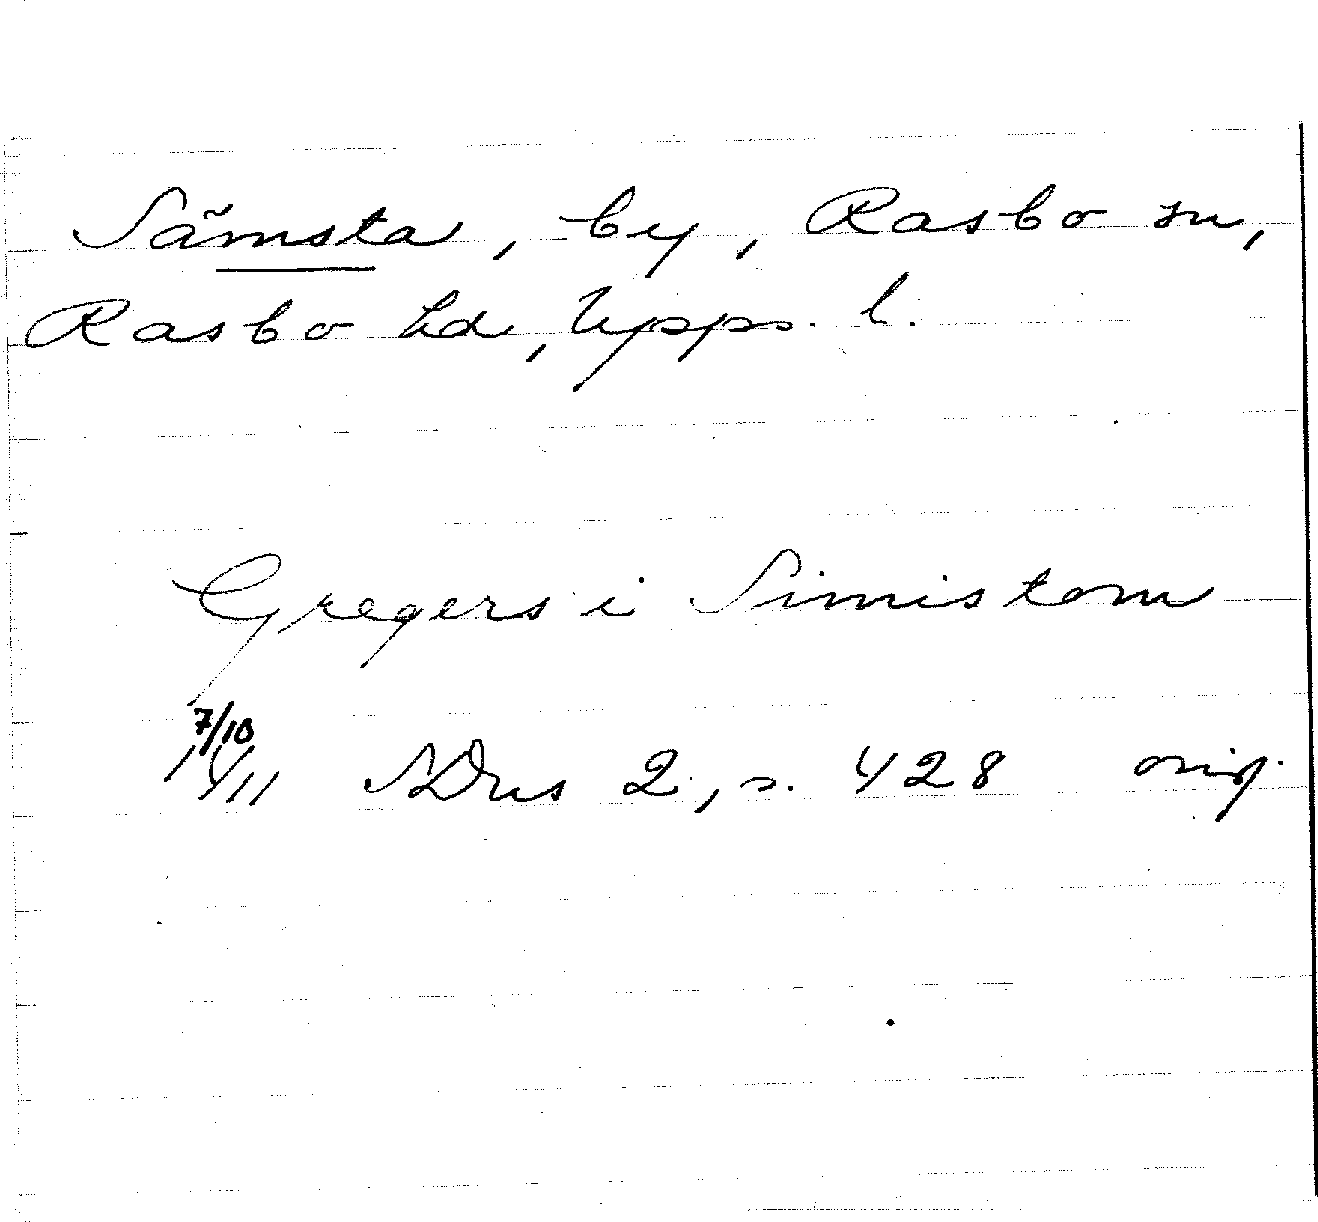 Sämsta, by, Rasbo sn,
Rasbo hd, Upps. l.
Gregers i Simistom
7/10
1411 SDns 2, s. 428 orig.